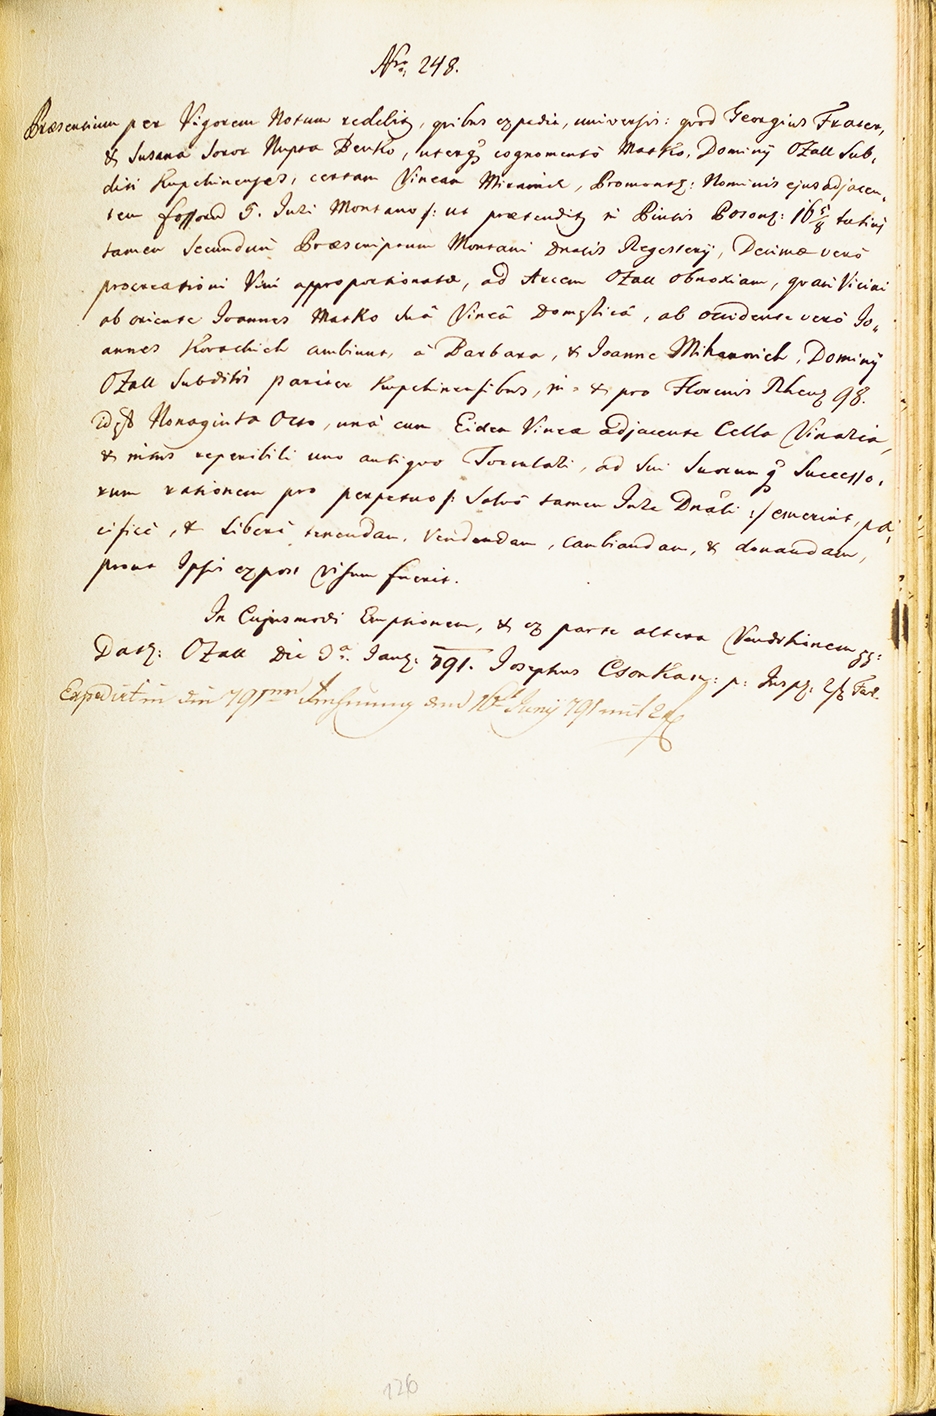 Nro 248.
Præsentium per Vigorem Notum redditq, quibus expedit, universis: quod Georgius Frater,
& Susana Soror Nupta Benko, uterq cognomento Matko, Dominij OZall Sub,,
diti Kupchinenses, certam Vineam Promontq: Nominis ejus adjacen,,
tem fossorũ 5. Juri Montano /: ut prætenditq in Pintis Posonq: 16 5/8
tamen Secundum Præscriptum Montani Dnalis Regesterij, Decimæ verò
procreationi Vini appropportionatæ, ad Arcem OZall obnoxiam, quasi Vicini
ab oriente Joannes Matko suâ Vineâ Domesticâ, ab occidente verò Jo,,
annes Korachich ambiunt, â Barbara, & Joanne Mihanovich, Dominij
OZall Subditis pariter Kupchinensibus, in & pro Florenis Rhenq 98.
idest Nonaginta Octo, unâ cum Eidem Vineæ adjacente Cella Vinaria,
& intus reperibili uno antiquo Torculari, ad Sui Suorumq Successo,,
rum rationem pro perpetuo /: Salvô tamen Jure Dnâli :/ emerint, pa,,
cificè, & Liberè tenendam, Vendendam, Cambiandam, & donandam,
prout Ipsis expost Visum fuerit.
In Cujusmodi Emptionem, & ex parte altera Venditionem pp:
Datq: OZall Die 3a. Janq: 791. Josephus Csonkaq: p: Inspq:
Expedirt in die 791ger Rechnung den 16t Junij 791 mit 2
126